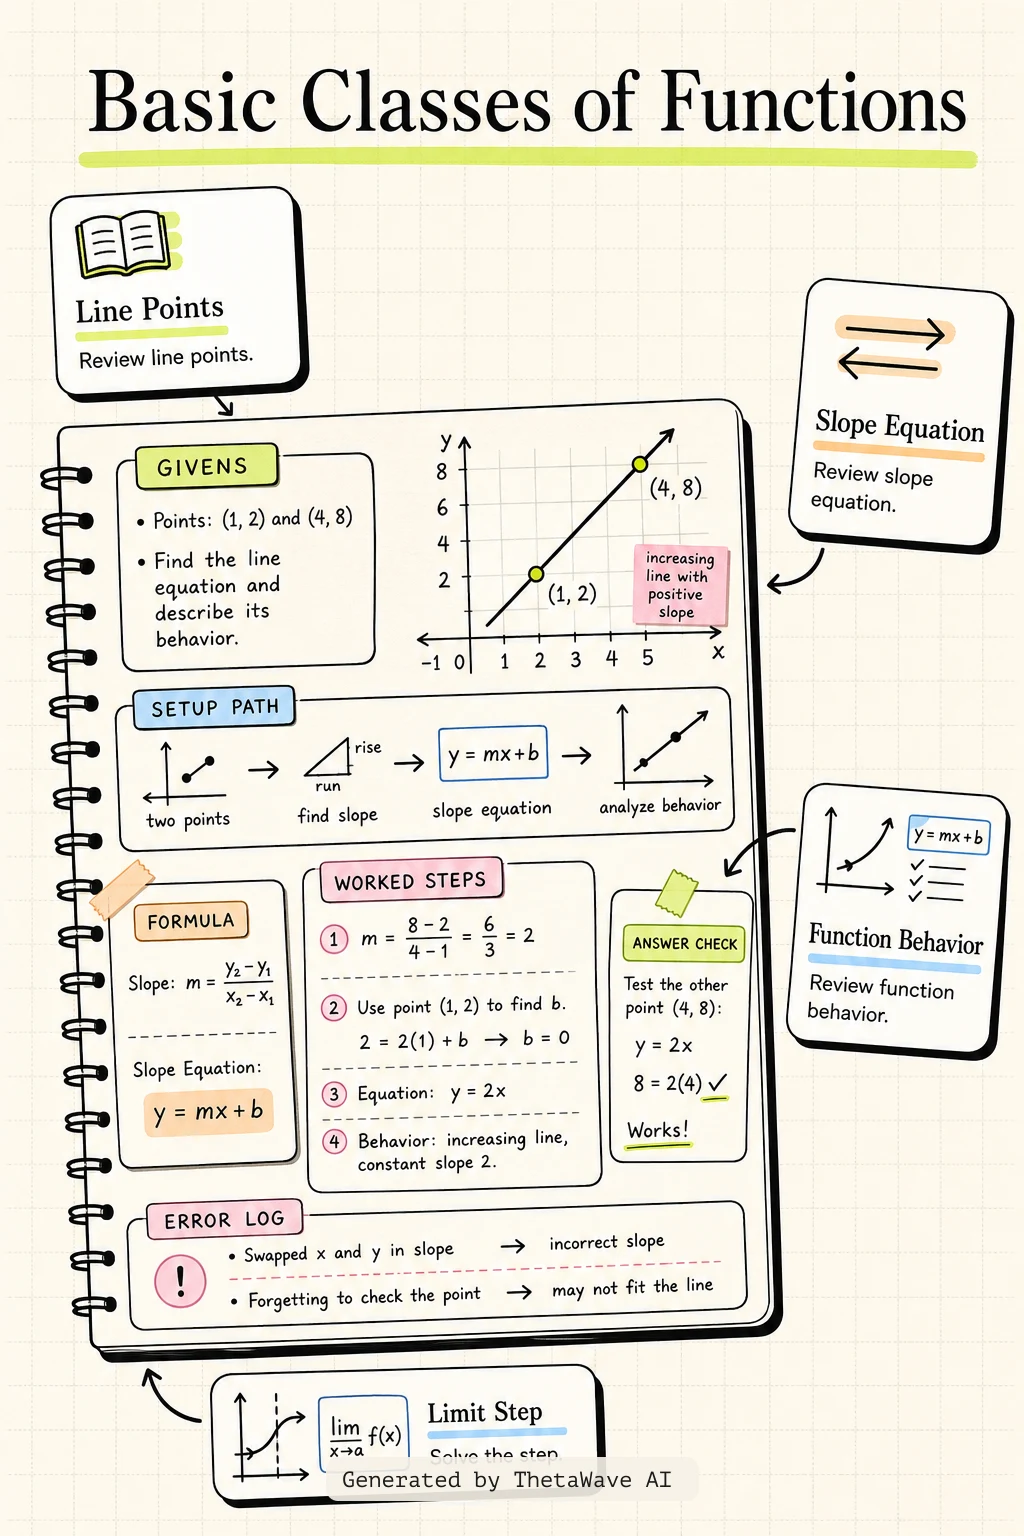 Basic Classes of Functions
Line Points
Review line points.
Slope Equation
Review slope
equation.
GIVENS
• Points: (1, 2) and (4, 8)
• Find the line
equation and
describe its
behavior.
y
8
6
4
2
(4, 8)
(1, 2)
increasing
line with
positive
slope
-1 0 1 2 3 4 5 x
SETUP PATH
two points
rise
run
find slope
y = mx+b
slope equation
analyze behavior
y = mx+b
Function Behavior
Review function
behavior.
FORMULA
Slope: m = (y₂ – y₁)/(x₂ – x₁)
Slope Equation:
y = mx + b
WORKED STEPS
1 m = (8 – 2)/(4 – 1) = 6/3 = 2
2 Use point (1, 2) to find b.
2 = 2(1) + b → b = 0
3 Equation: y = 2x
4 Behavior: increasing line,
constant slope 2.
ANSWER CHECK
Test the other
point (4, 8):
y = 2x
8 = 2(4) ✓
Works!
ERROR LOG
!
• Swapped x and y in slope → incorrect slope
• Forgetting to check the point → may not fit the line
lim x→a f(x)
Limit Step
Solve the step.
Generated by ThetaWave AI